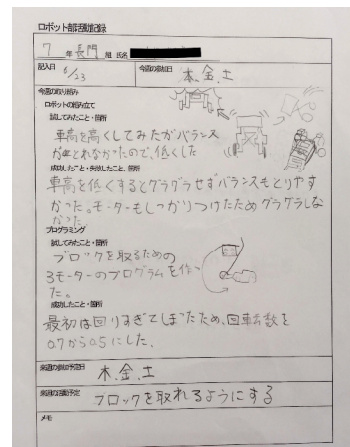 ロボット部活動記録
7 年 長門 組 氏名
記入日 6/23 今週の参加日 木.金.土
今週の取り組み
ロボットの組み立て
試してみたこと・箇所
車高を高くしてみたがバランス
がとれなかったので、低くした
成功したこと・失敗したこと、箇所
車高を低くするとグラグラせずバランスもとりやす
かった。モーターもしっかりつけたためグラグラしな
かった。
プログラミング
試してみたこと・箇所
ブロックを取るための
3モーターのプログラムを作っ
た。
成功したこと・箇所
最初は回りすぎてしまったため、回転数を
0.7から0.5にした。
来週の参加予定日 木.金.土
来週の活動予定 ブロックを取れるようにする
メモ